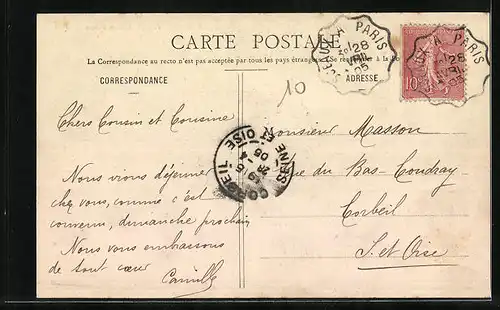 CARTE POSTALE
La Correspondance au recto n'est pas acceptée par tous les pays étrangers. Se
CORRESPONDANCE
ADRESSE
SCEAUX A PARIS
28
05
A PARIS
28
05
10
10
Chers Cousin et Cousine
Nous vions déjeuner
chez vous, comme c'est
convenu, dimanche prochain
Nous vous embrassons
de tout cœur
Camille
CORBEIL
SEINE ET OISE
05
Monsieur Masson
Rue du Bas-Coudray
Corbeil
S. et Oise